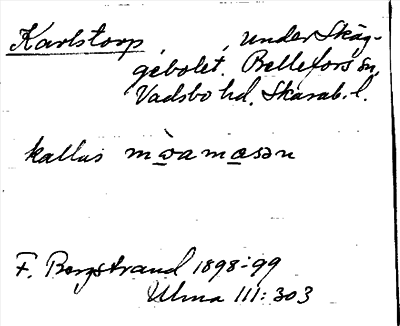 Karlstorp, , under Skäg-
gebolet. Bellefors sn,
Vadsbo hd. Skarab. l.
kallas
F. Bergstrand 1898-99
Ulma 111:303